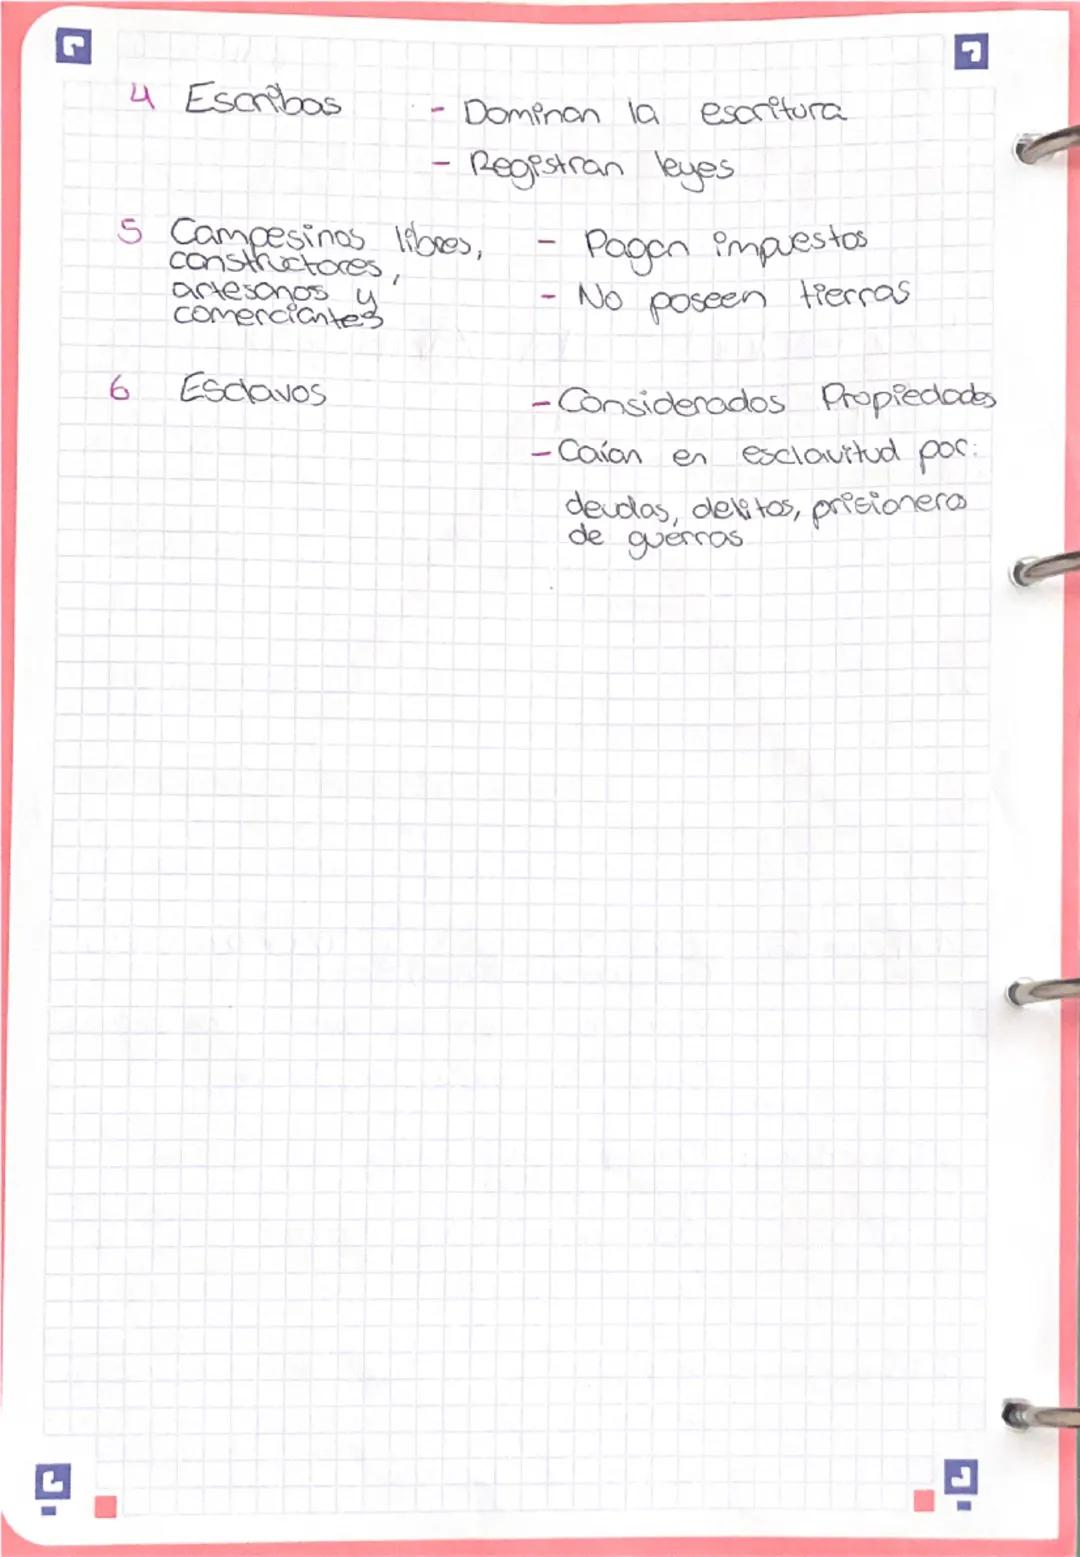 4 Escribas - Dominan la escritura
- Registran leyes
5 Campesinos libres, - Pagan impuestos
constructores,
artesanos y - No poseen tierras
comerciantes
6 Esclavos - Considerados Propiedades
- Caían en esclavitud por:
deudas, delitos, prisioneros
de guerras